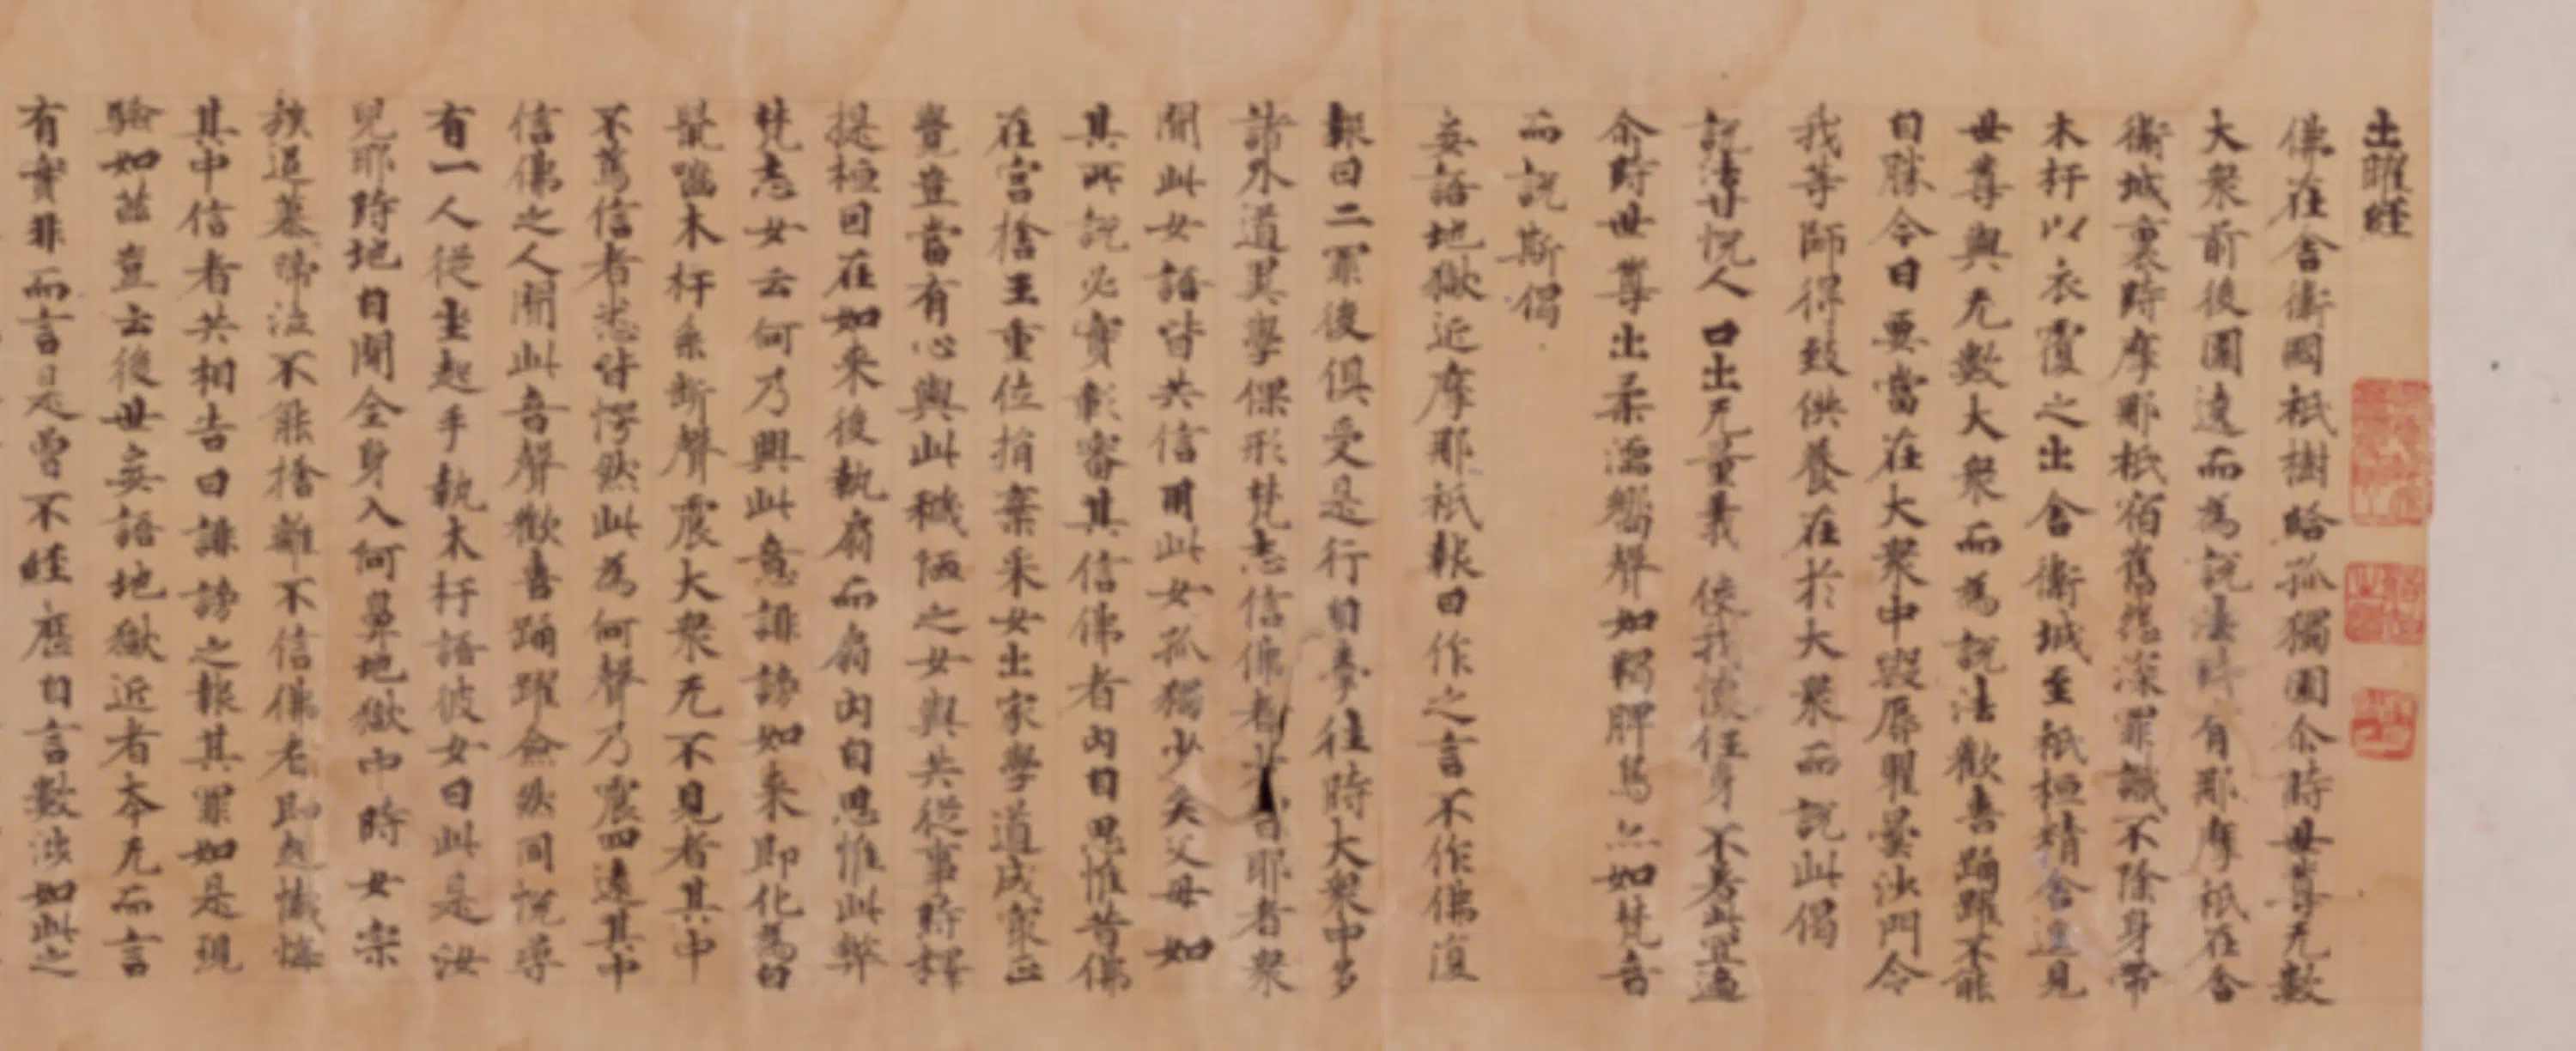 出曜經
佛在舍衛國祇樹給孤獨園尒時世尊无數
大衆前後圍遶而為說法時有那摩祇在舍
衛城裏時摩那祇宿舊緣深罪識不除身帶
木杅以衣覆之出舍衛城至祇桓精舍遥見
世尊與无數大衆而為說法歡喜踊躍不能
自勝今日要當在大衆中毀辱瞿曇沙門令
我等師得致供養在於大衆而說此偈
說法甘悅人口出无量義使我懷任身不者此宜適
尒時世尊出柔濡響聲如羯脾鳥亦如梵音
而說斯偈
妄語地獄近摩那祇報曰作之言不作佛復
報曰二罪後俱受是行自牽往時大衆中多
諸外道其學倮形梵志信佛者少信耶者衆
聞此女語皆共信用此女孤獨少失父母如
其所說必實彰審其信佛者內自思惟昔佛
在宮捨王重位捐棄采女出家學道成最正
覺豈當有心與此穢陋之女與共從事時釋
提桓因在如来後執扇而扇內自思惟此弊
梵志女云何乃興此意誹謗如来即化為白
鼠嚙木杅系斷聲震大衆无不見者其中
不篤信者悉皆愕然此為何聲乃震四遠其中
信佛之人聞此音聲歡喜踊躍僉然同悅尋
有一人從坐起手執木杅語彼女曰此是汝
兒耶時地自開全身入阿鼻地獄中時女宗
族追慕啼泣不能捨離不信佛者即起懺悔
其中信者共相告曰誹謗之報其罪如是現
驗如茲豈云後世妄語地獄近者夲无而言
有實非而言是曾不經歷自言數涉如此之